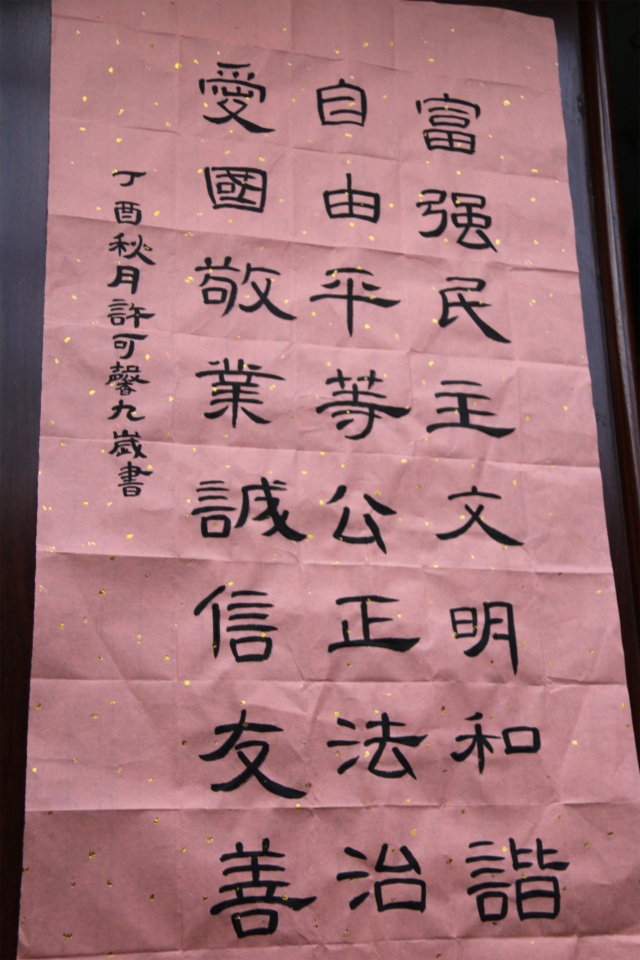 富强民主文明和諧
自由平等公正法治
愛國敬業誠信友善
丁酉秋月許可馨九歲書